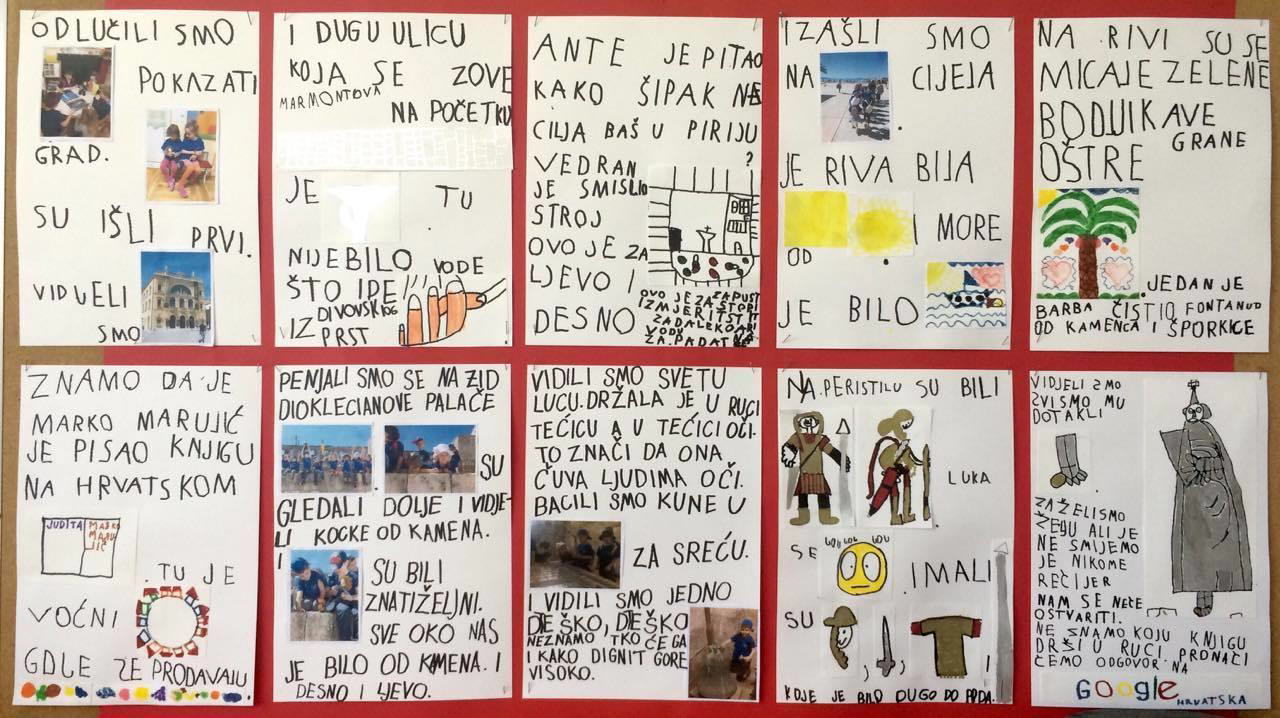 ODLUČILI SMO
POKAZATI
GRAD.
SU IŠLI PRVI.
VIDJELI
SMO
I DUGU ULICU
KOJA SE ZOVE
MARMONTOVA
NA POČETKU
JE TU
NIJE BILO VODE
ŠTO IDE
IZ DIVOVSKOG
PRST
ANTE JE PITAO
KAKO ŠIPAK NE
CILJA BAŠ U PIRIJU
?
VEDRAN
JE SMISLIO
STROJ
OVO JE ZA
LJEVO I
DESNO
OVO JE ZA STOP I
ZAPUST
IZMJERITI
ZADALEKO
VODU
ZA PADAT
IZAŠLI SMO
NA . CIJELA
JE RIVA BIJA
OD . I MORE
JE BILO
NA RIVI SU SE
MICAJE ZELENE
BODLJIKAVE
OŠTRE GRANE
. JEDAN JE
BARBA ČISTIO FONTANU
OD KAMENCA I ŠPORKICE
ZNAMO DA JE
MARKO MARUJIĆ
JE PISAO KNJIGU
NA HRVATSKOM
JUDITA
MARKO
MARUJIĆ
. TU JE
VOĆNI
GDLE ZE PRODAVAJU
PENJALI SMO SE NA ZID
DIOKLECIANOVE PALAČE
. SU
GLEDALI DOLJE I VIDJE-
LI KOCKE OD KAMENA.
I SU BILI
ZNATIŽELJNI.
SVE OKO NAS
JE BILO OD KAMENA. I
DESNO I LJEVO.
VIDILI SMO SVETU
LUCU. DRŽALA JE U RUCI
TEĆICU A U TEĆICI OČI.
TO ZNAČI DA ONA
ČUVA LJUDIMA OČI.
BACILI SMO KUNE U
ZA SREĆU.
I VIDILI SMO JEDNO
DJEŠKO, DJEŠKO
NEZNAMO TKO ĆE GA
I KAKO DIGNIT GORE
VISOKO.
NA PERISTILU SU BILI
. LUKA
SE . IMALI
SU , , I
KOJE JE BILO DUGO DO PODA.
VIDJELI SMO
SVI SMO MU
DOTAKLI
ZAŽELI SMO
ŽELJU ALI JE
NE SMIJEMO
JE NIKOME
REĆI JER
NAM SE NEĆE
OSTVARITI.
NE ZNAMO KOJU KNJIGU
DRŽI U RUCI. PRONAĆI
ĆEMO ODGOVOR NA
GOOGLE HRVATSKA